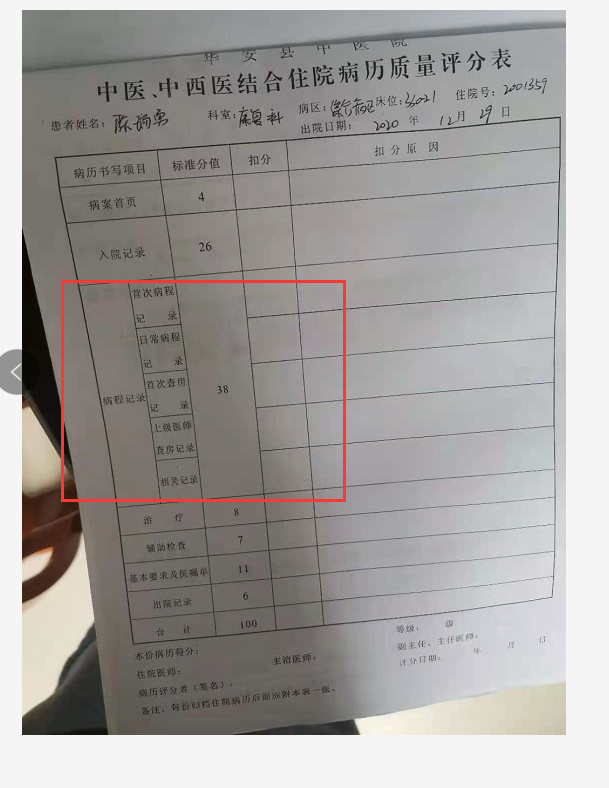 华安县中医院
中医、中西医结合住院病历质量评分表
患者姓名： 科室：康复科 病区： 床位： 住院号：2001359
出院日期：2020 年 12 月 29 日
病历书写项目 标准分值 扣分 扣分原因
病案首页 4
入院记录 26
病程记录 38
首次病程记录
日常病程记录
首次查房记录
上级医师查房记录
相关记录
治疗 8
辅助检查 7
基本要求及医嘱单 11
出院记录 6
合计 100
本份病历得分： 等级： 级
住院医师： 主治医师： 副主任、主任医师：
病历评分者（签名）， 评分日期： 年 月 日
备注：每份归档住院病历后面应附本表一张。